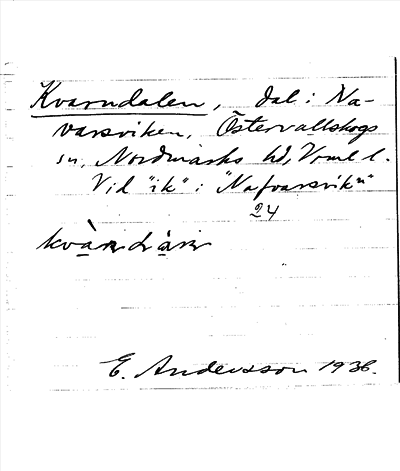 Kvarndalen, dal i Na-
varsviken, Östervallskogs
sn, Nordmarks hd, Vrml l.
Vid "ik" i "Nafvarsvikn"
24
E. Andersson 1936.